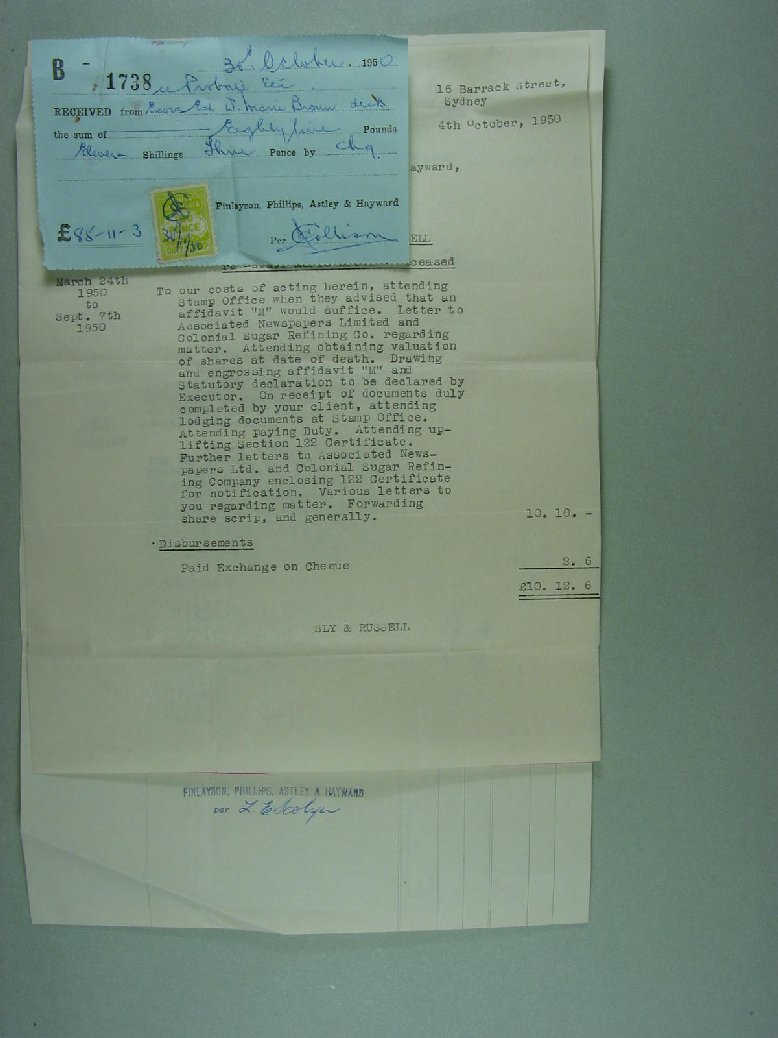 B - 1738
30th October. 1950
re Probate
RECEIVED from Exors Est. Marie Brown decd
the sum of Eighty five Pounds
Eleven Shillings Three Pence by chq
Finlayson, Phillips, Astley & Hayward
£85-11-3
30/10/50
Per
16 Barrack Street,
Sydney
4th October, 1950
ayward,
ELL
ceased
March 24th
1950
to
Sept. 7th
1950
To our costs of acting herein, attending
Stamp Office when they advised that an
affidavit "M" would suffice. Letter to
Associated Newspapers Limited and
Colonial Sugar Refining Co. regarding
matter. Attending obtaining valuation
of shares at date of death. Drawing
and engrossing affidavit "M" and
Statutory declaration to be declared by
Executor. On receipt of documents duly
completed by your client, attending
lodging documents at Stamp Office.
Attending paying Duty. Attending up-
lifting Section 122 Certificate.
Further letters to Associated News-
papers Ltd. and Colonial Sugar Refin-
ing Company enclosing 122 Certificate
for notification. Various letters to
you regarding matter. Forwarding
share scrip, and generally. 10. 10. -
Disbursements
Paid Exchange on Cheque 2. 6
£10. 12. 6
SLY & RUSSELL
FINLAYSON, PHILLIPS, ASTLEY & HAYWARD
per